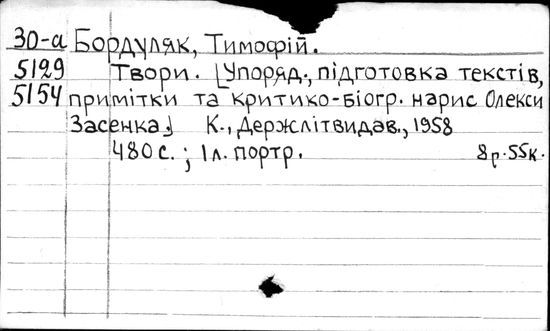 30-а Бордуляк, Тимофій.
5129 Твори. [Упоряд., підготовка текстів,
5154 примітки та критико-біогр. нарис Олекси
Засенка.] К., Держлітвидав., 1958
480 с. ; 1 л. портр. 8 р. 55 к.